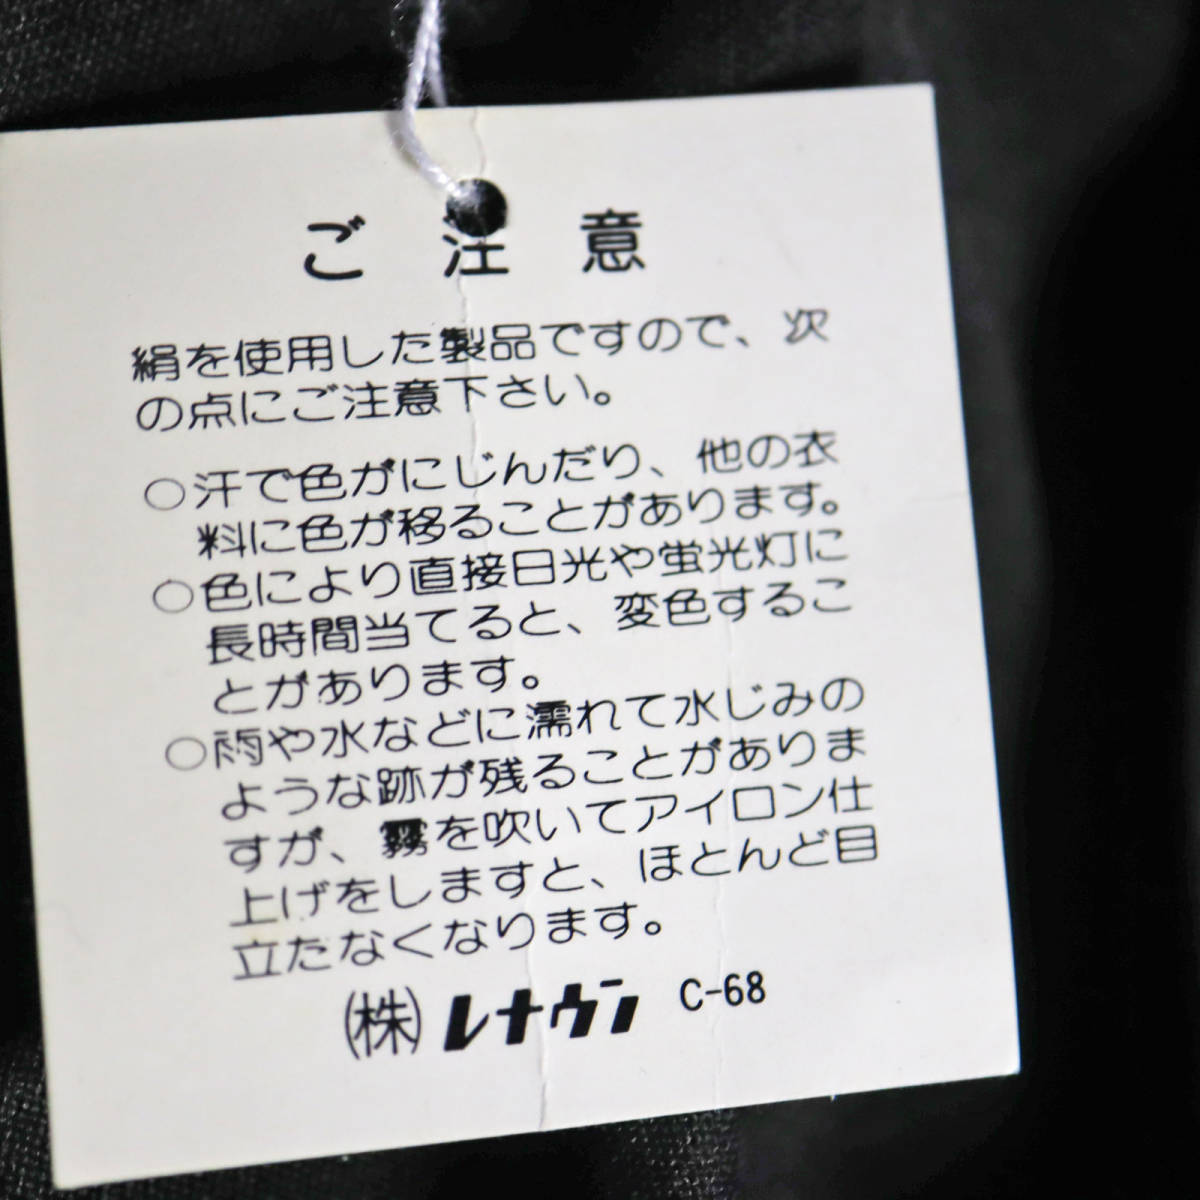 ご注意
絹を使用した製品ですので、次
の点にご注意下さい。
○汗で色がにじんだり、他の衣
料に色が移ることがあります。
○色により直接日光や蛍光灯に
長時間当てると、変色するこ
とがあります。
○雨や水などに濡れて水じみの
ような跡が残ることがありま
すが、霧を吹いてアイロン仕
上げをしますと、ほとんど目
立たなくなります。
(株)レナウン C-68